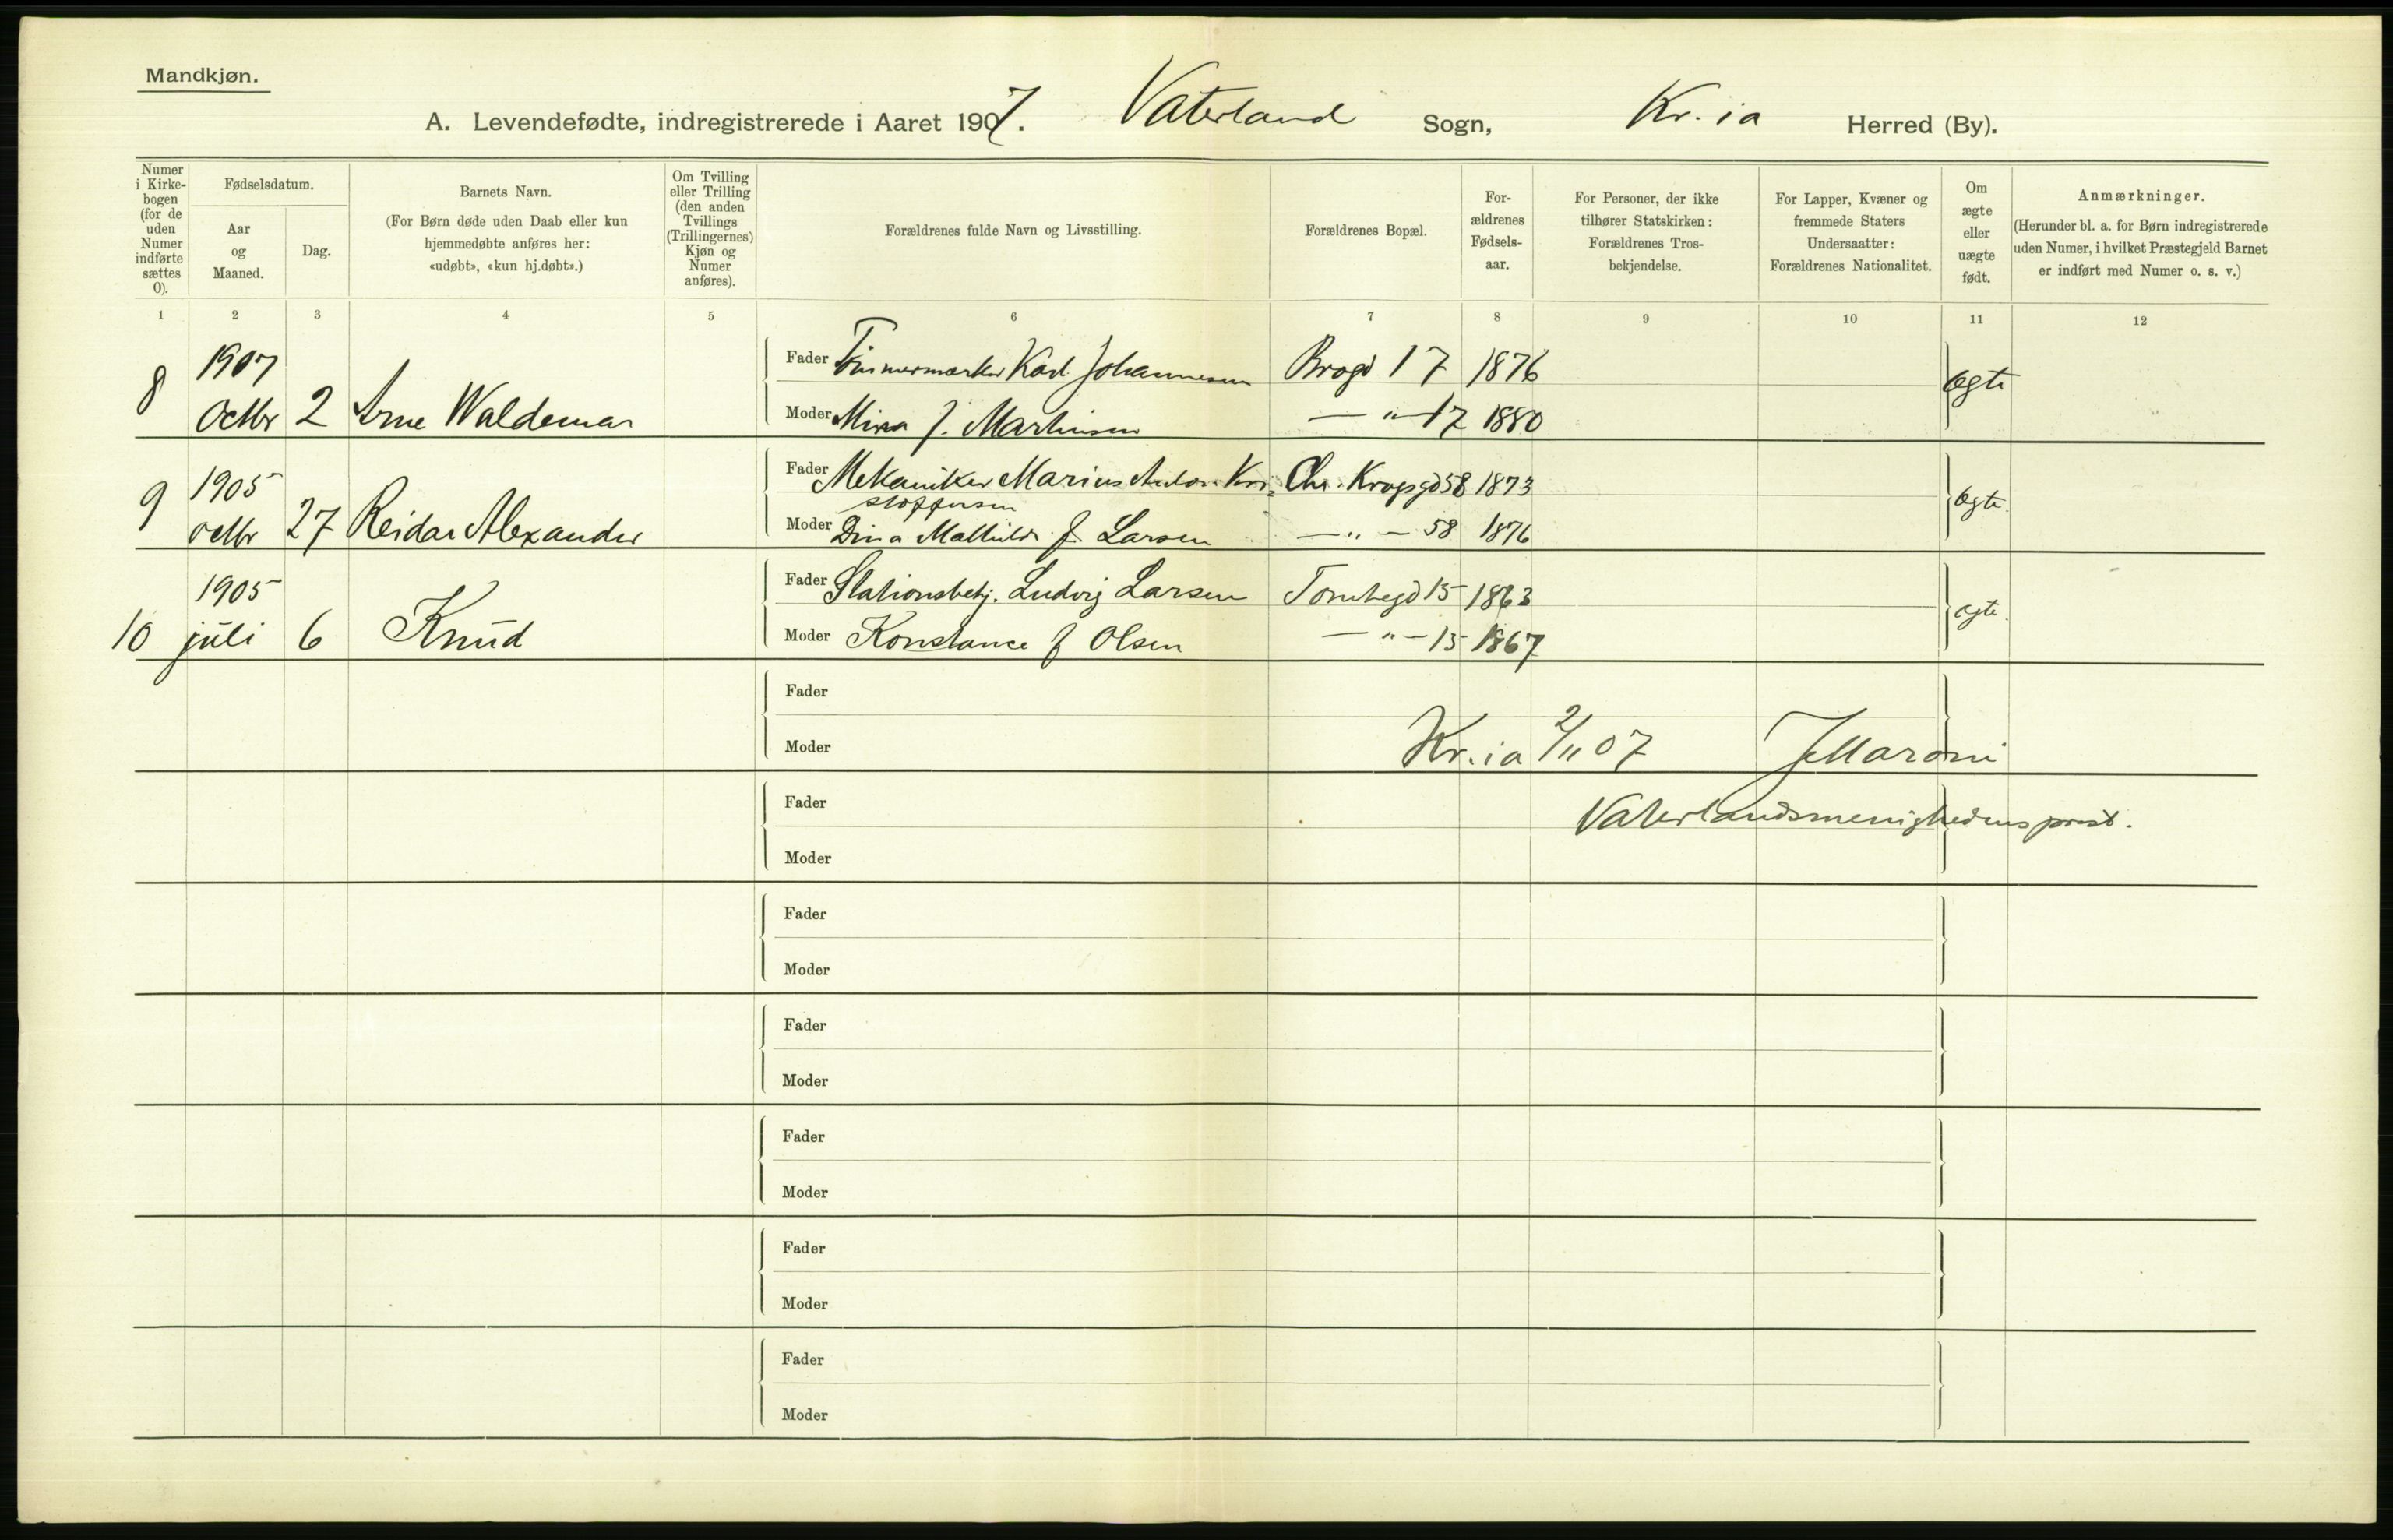 Mandkjøn.
A. Levendefødte, indregistrerede i Aaret 1907. Vaterland Sogn, Kr.ia Herred (By).
Numer i Kirke-bogen (for de uden Numer indførte sættes 0).
Fødselsdatum.
Aar og Maaned.
Dag.
Barnets Navn.
(For Børn døde uden Daab eller kun
hjemmedøbte anføres her:
«udøbt», «kun hj.døbt».)
Om Tvilling
eller Trilling
(den anden
Tvillings
(Trillingernes)
Kjøn og
Numer
anføres).
Forældrenes fulde Navn og Livsstilling.
Forældrenes Bopæl.
For-
ældrenes
Fødsels-
aar.
For Personer, der ikke
tilhører Statskirken:
Forældrenes Tros-
bekjendelse.
For Lapper, Kvæner og
fremmede Staters
Undersaatter:
Forældrenes Nationalitet.
Om
ægte
eller
uægte
født.
Anmærkninger.
(Herunder bl. a. for Børn indregistrerede
uden Numer, i hvilket Præstegjeld Barnet
er indført med Numer o. s. v.)
1 2 3 4 5 6 7 8 9 10 11 12
8 1907 Octbr 2 Arne Waldemar
Fader Karl Johannesen Brogd 17 1876 ægte
Moder Mina f. Martinsen — " — 17 1880
9 1905 octbr 27 Reidar Alexander
Fader Mekaniker Marius Anton Kri- Chr. Krogsgd 58 1873 ægte.
stoffersen
Moder Dina Mathilde f. Larsen — " — 58 1876
10 1905 juli 6 Knud
Fader Stationsbetj. Ludvig Larsen Tomtegd 15 1863 ægte.
Moder Konstance f Olsen — " — 15 1867
Fader
Moder
Kr.ia 2/11 07 JMaroni
Fader
Vaterlandsmenighedens prest.
Moder
Fader
Moder
Fader
Moder
Fader
Moder
Fader
Moder
Fader
Moder